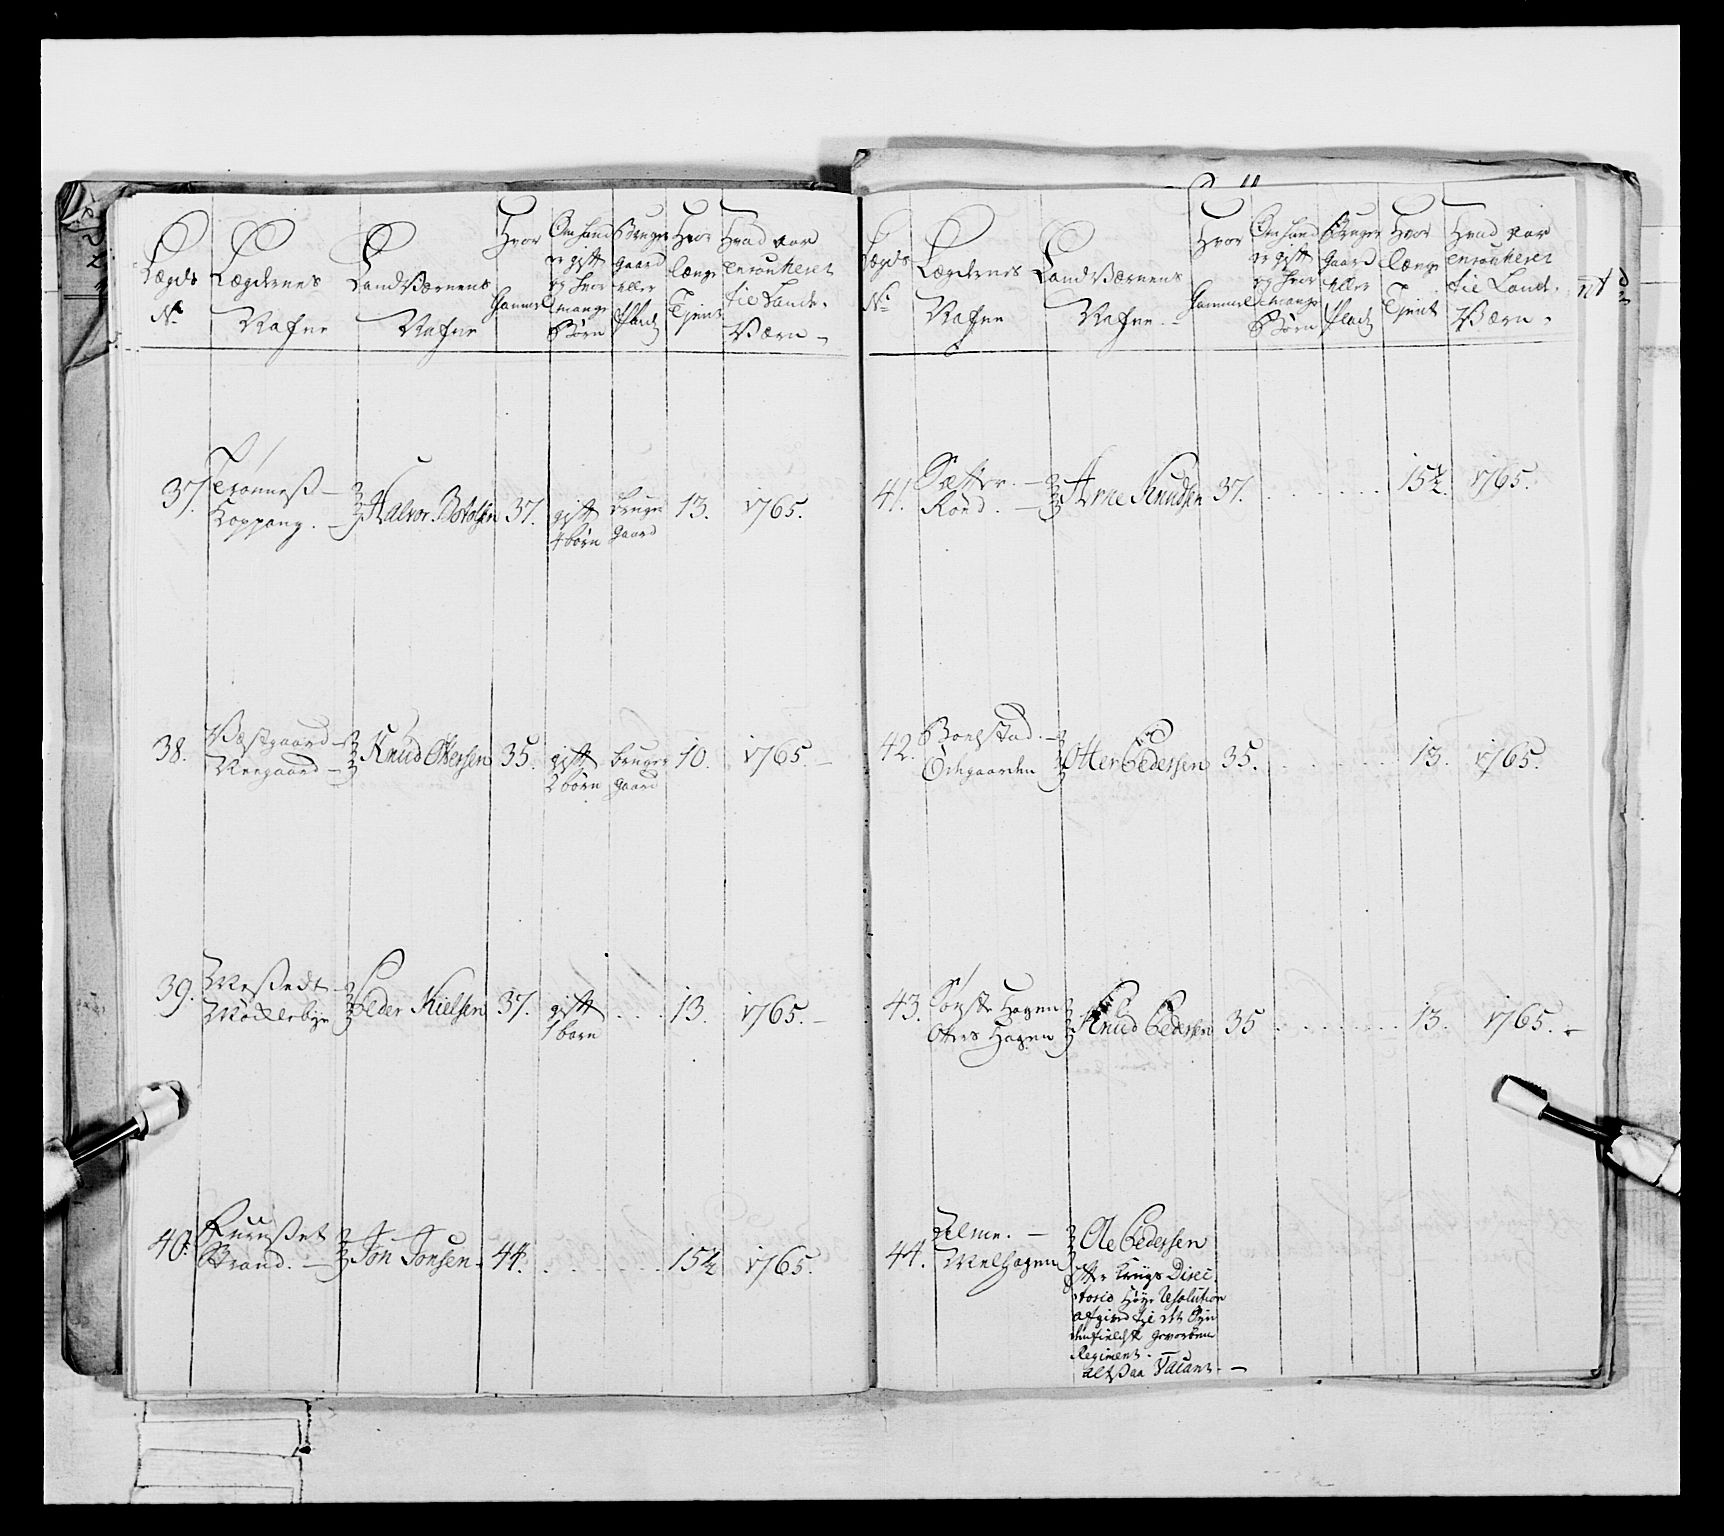 Lægds
No
Lægdernes
Nafne
LandVærnens
Nafne
Hvor
Gammel
Om hand
er gift
og hvor
mange
Børn
Bruger
gaard
eller
Plads
Hvor
længe
Tient
Hvad aar
enroulleret
til Land-
Værn
37.
Trønness
Koppang.
Halvor Botolsen
37.
gift
4 børn
bruger
gaard
13.
1765.
38.
Westgaard
Neegaard
Knud Ottersen
35.
gift
2 børn
bruger
gaard
10.
1765.
39.
Messelt
Møcklebye
Peder Nielsen
37.
gift
1 barn
13.
1765.
40.
Strand.
Jon Jonsen
44.
15½
1765.
Lægds
No
Lægdernes
Nafne
LandVærnens
Nafne.
Hvor
Gammel
Om hand
er gift
og hvor
mange
Børn
Bruger
gaard
eller
Plads
Hvor
længe
Tient
Hvad aar
enroulleret
til Land-
Værn.
41.
Sætter.
Rond.
Arne Knudsen
37.
15½.
1765.
42.
Ødegaarden
Otter Pedersen
35.
13.
1765.
43.
Hagen
Otters Hagen
Knud Pedersen
35
13.
1765.
44.
Melhagen
Ole Pedersen
efter Krigs Direc
torio Høye Resolution
afgived til det Syn
denfieldske Gevorbne
Regiment.
altsaa Vacant.